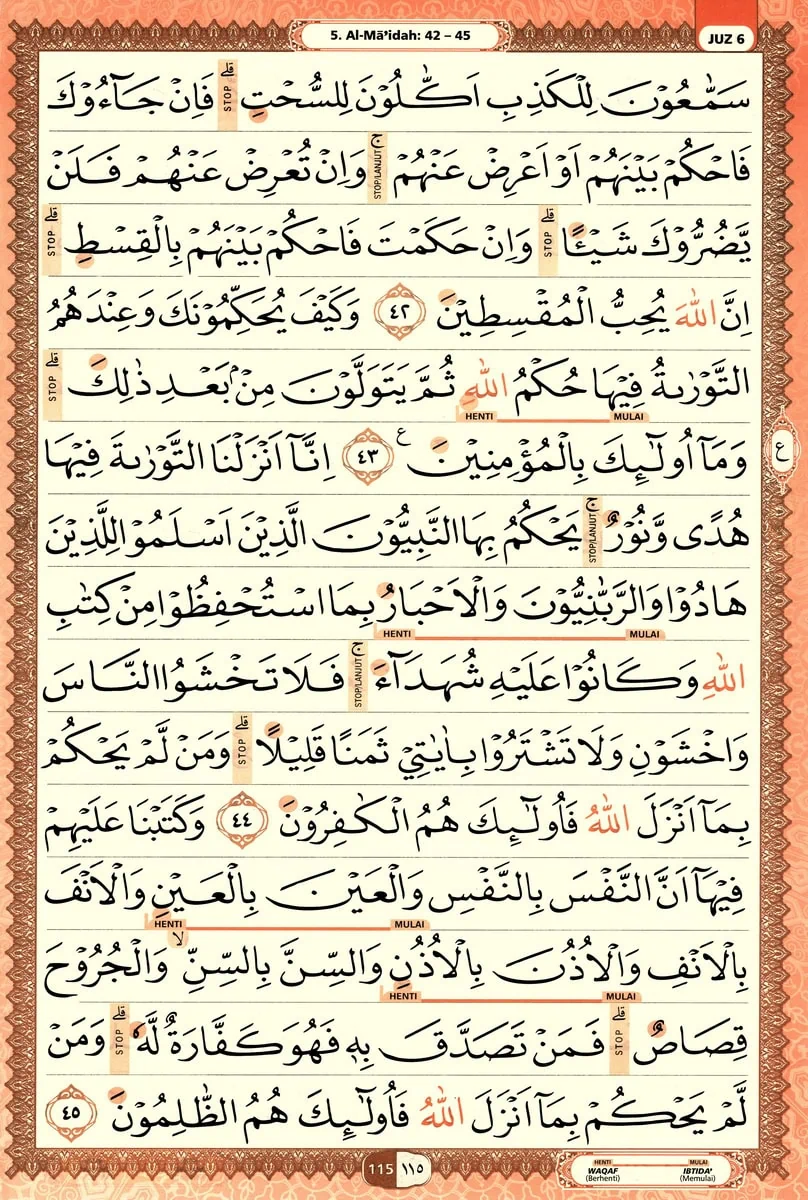 5. Al-Mā'idah: 42 – 45
JUZ 6
سَمّٰعُوْنَ لِلْكَذِبِ اَكّٰلُوْنَ لِلسُّحْتِۗ STOP فَاِنْ جَاۤءُوْكَ
فَاحْكُمْ بَيْنَهُمْ اَوْ اَعْرِضْ عَنْهُمْۚ STOP/LANJUT وَاِنْ تُعْرِضْ عَنْهُمْ فَلَنْ
يَّضُرُّوْكَ شَيْـًٔاۗ STOP وَاِنْ حَكَمْتَ فَاحْكُمْ بَيْنَهُمْ بِالْقِسْطِۗ STOP
اِنَّ اللّٰهَ يُحِبُّ الْمُقْسِطِيْنَ ٤٢ وَكَيْفَ يُحَكِّمُوْنَكَ وَعِنْدَهُمُ
التَّوْرٰىةُ فِيْهَا حُكْمُ اللّٰهِ ثُمَّ يَتَوَلَّوْنَ مِنْۢ بَعْدِ ذٰلِكَۗ STOP
HENTI MULAI
وَمَآ اُولٰۤىِٕكَ بِالْمُؤْمِنِيْنَ ࣖ ٤٣ اِنَّآ اَنْزَلْنَا التَّوْرٰىةَ فِيْهَا
ع
هُدًى وَّنُوْرٌۚ STOP/LANJUT يَحْكُمُ بِهَا النَّبِيُّوْنَ الَّذِيْنَ اَسْلَمُوْا لِلَّذِيْنَ
هَادُوْا وَالرَّبّٰنِيُّوْنَ وَالْاَحْبَارُ بِمَا اسْتُحْفِظُوْا مِنْ كِتٰبِ
HENTI MULAI
اللّٰهِ وَكَانُوْا عَلَيْهِ شُهَدَاۤءَۚ STOP/LANJUT فَلَا تَخْشَوُا النَّاسَ
وَاخْشَوْنِ وَلَا تَشْتَرُوْا بِاٰيٰتِيْ ثَمَنًا قَلِيْلًاۗ STOP وَمَنْ لَّمْ يَحْكُمْ
بِمَآ اَنْزَلَ اللّٰهُ فَاُولٰۤىِٕكَ هُمُ الْكٰفِرُوْنَ ٤٤ وَكَتَبْنَا عَلَيْهِمْ
فِيْهَآ اَنَّ النَّفْسَ بِالنَّفْسِ وَالْعَيْنَ بِالْعَيْنِ وَالْاَنْفَ
HENTI MULAI
بِالْاَنْفِ وَالْاُذُنَ بِالْاُذُنِ وَالسِّنَّ بِالسِّنِّۙ وَالْجُرُوْحَ
HENTI MULAI
قِصَاصٌۗ STOP فَمَنْ تَصَدَّقَ بِهٖ فَهُوَ كَفَّارَةٌ لَّهٗۗ STOP وَمَنْ
لَّمْ يَحْكُمْ بِمَآ اَنْزَلَ اللّٰهُ فَاُولٰۤىِٕكَ هُمُ الظّٰلِمُوْنَ ٤٥
115 ١١٥
HENTI MULAI
WAQAF IBTIDA'
(Berhenti) (Memulai)